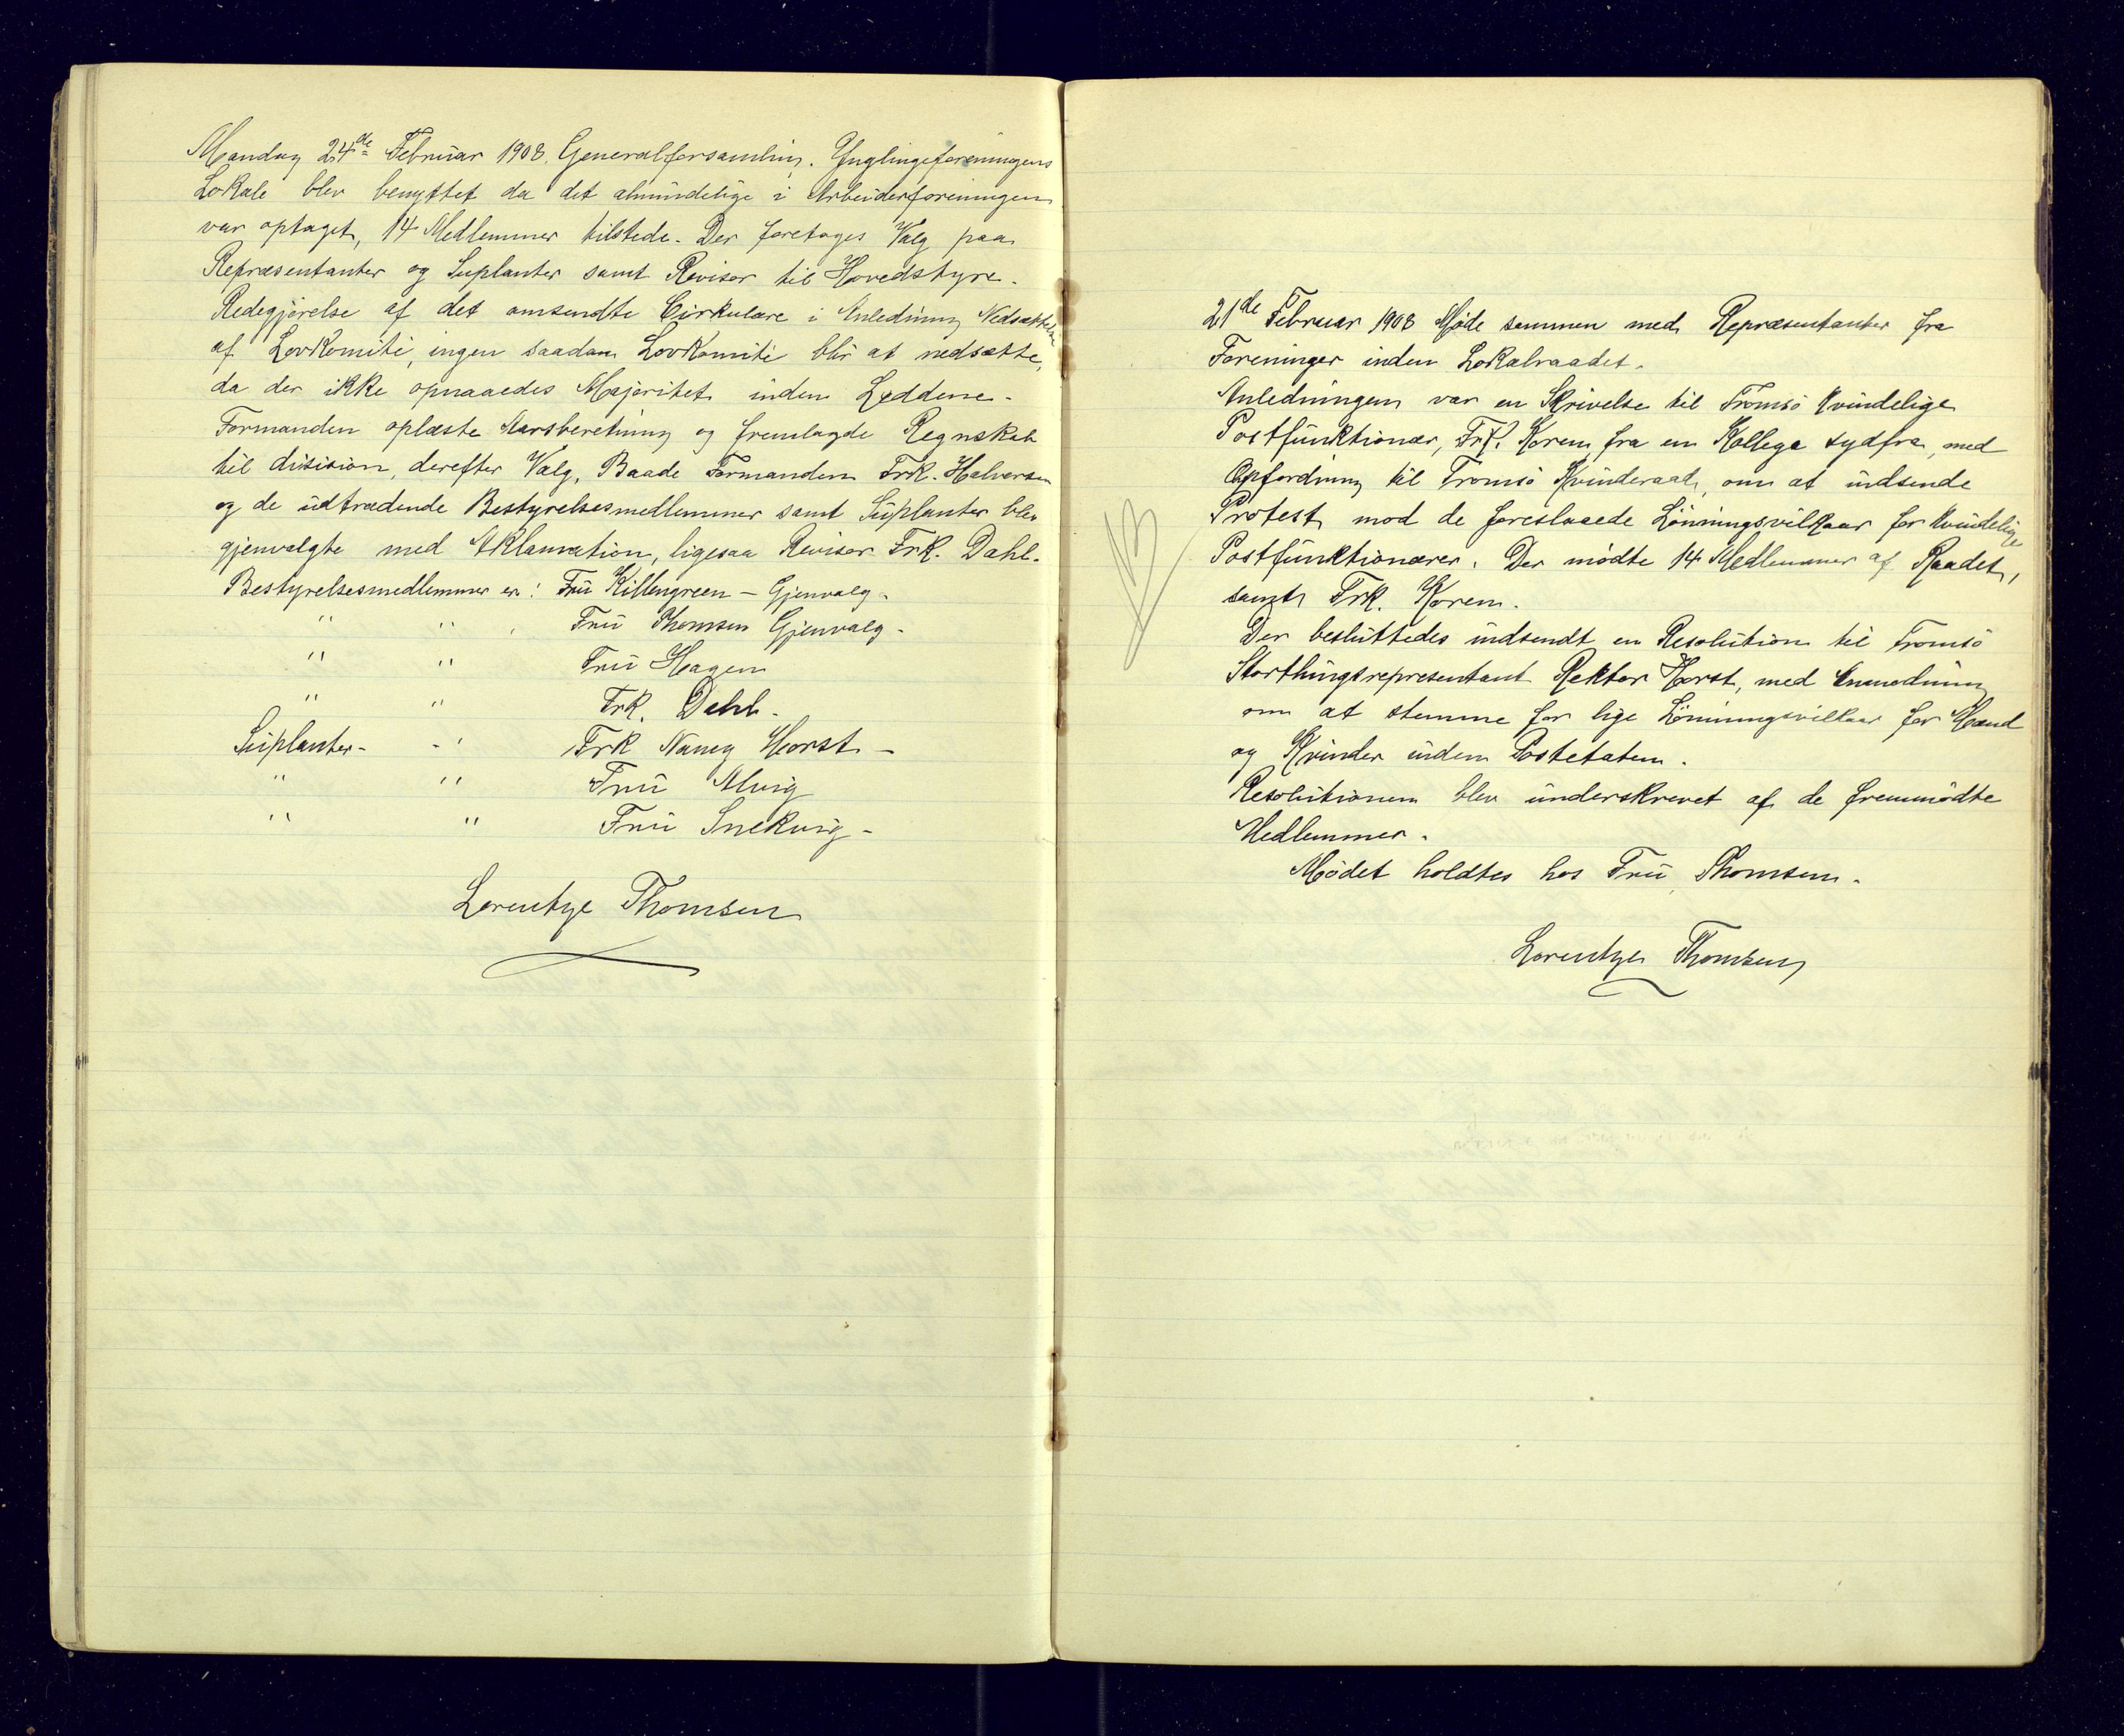 Mandag 24de Februar 1908. Generalforsamling. Ynglingeforeningens
Lokale blev benyttet da det almindelige i Arbeiderforeningen
var optaget, 14 Medlemmer tilstede. Der foretages Valg paa
Repræsentanter og Suplanter samt Revisor til Hovedstyre.
Redegjørelse af det omsendte Cirkulære i Anledning Nedsættelse
af Lovkomité, ingen saadan Lovkomité blir at nedsætte,
da der ikke opnaaedes Majoritet inden Leddene.
Formanden oplæste Aarsberetning og fremlagde Regnskab
til disision, derefter Valg, Baade Formanden Frk. Halvorsen
og de udtrædende Bestyrelsesmedlemmer samt Suplanter blev
gjenvalgte med Aklamation, ligesaa Revisor Frk. Dahl.
Bestyrelsesmedlemmer er: Frü Killengreen - Gjenvalg.
" " Frü Thomsen Gjenvalg -
" " Frü Hagen
" " Frk. Dahl -
Suplanter - " Frk Nancy Horst -
" " Frü Alvig
" " Frü Snekvig -
Lorentze Thomsen
21de Februar 1908 Møde sammen med Repræsentanter fra
Foreninger inden Lokalraadet.
Anledningen var en Skrivelse til Tromsö kvindelige
Postfunktionær, Frk. Korem, fra en Kollega sydfra, med
Opfordring til Tromsö Kvinderaad, om at indsende
Protest mod de foreslaaede Lönningsvilkaar for kvindelige
Postfunktionærer. Der mödte 14 Medlemmer af Raadet,
samt Frk. Korem.
Der besluttedes indsendt en Resolution til Tromsö
Storthingsrepresentant Rektor Horst, med Anmodning
om at stemme for lige Lönningsvilkaar for Mænd
og Kvinder inden Postetaten.
Resolutionen blev underskrevet af de fremmödte
Medlemmer.
Mödet holdtes hos Frü Thomsen.
Lorentze Thomsen